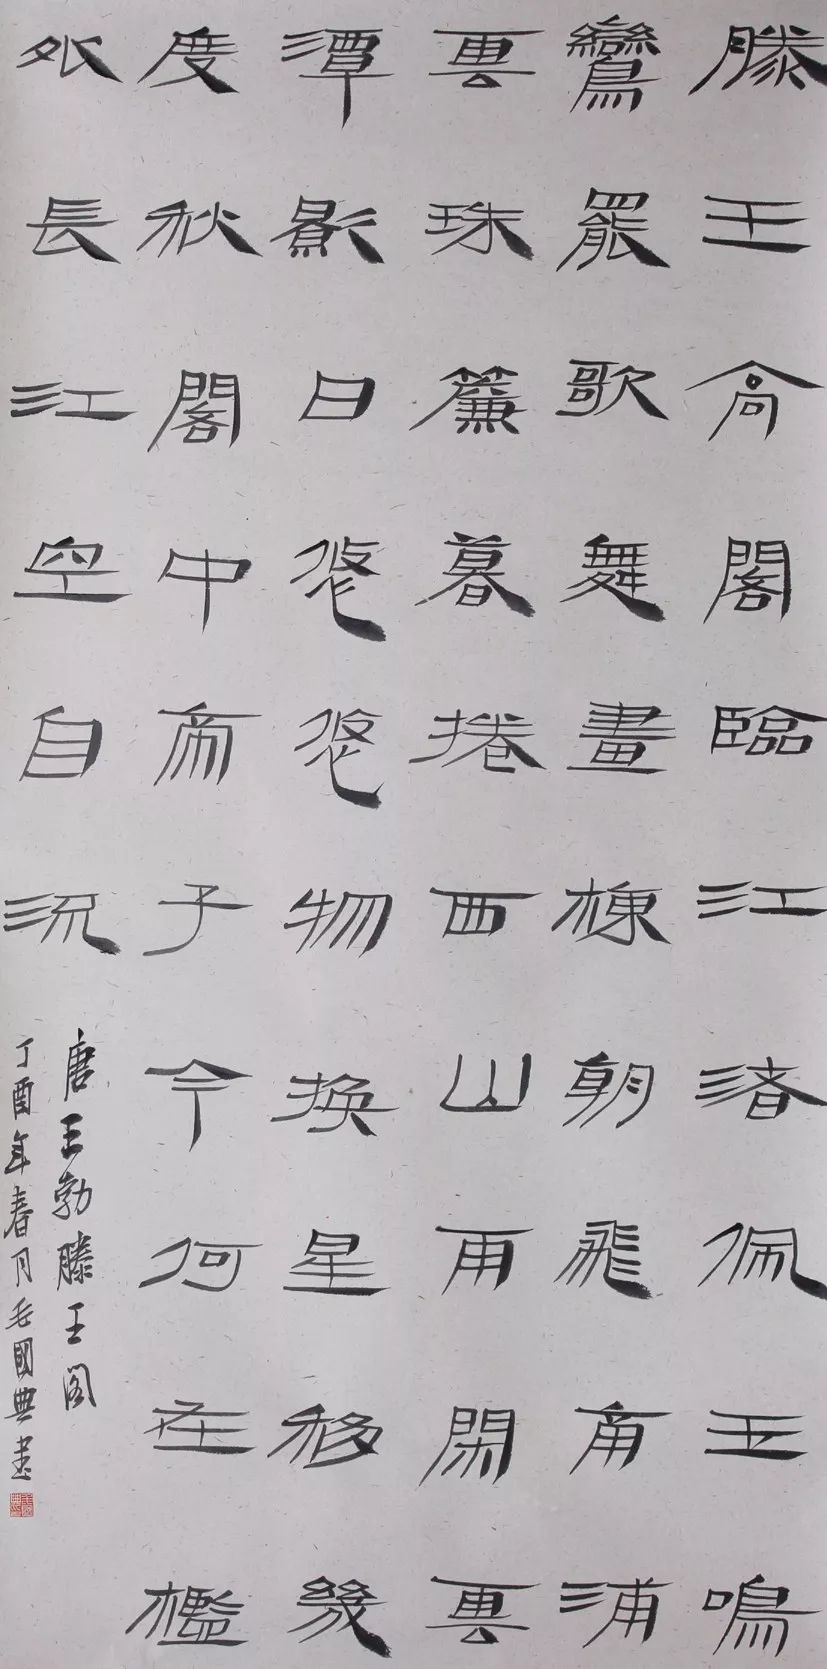 滕王高閣臨江渚佩玉鳴
鸞罷歌舞畫棟朝飛南浦
雲珠簾暮捲西山雨閑雲
潭影日悠悠物換星移幾
度秋閣中帝子今何在檻
外長江空自流
唐王勃滕王閣
丁酉年春月毛國典書